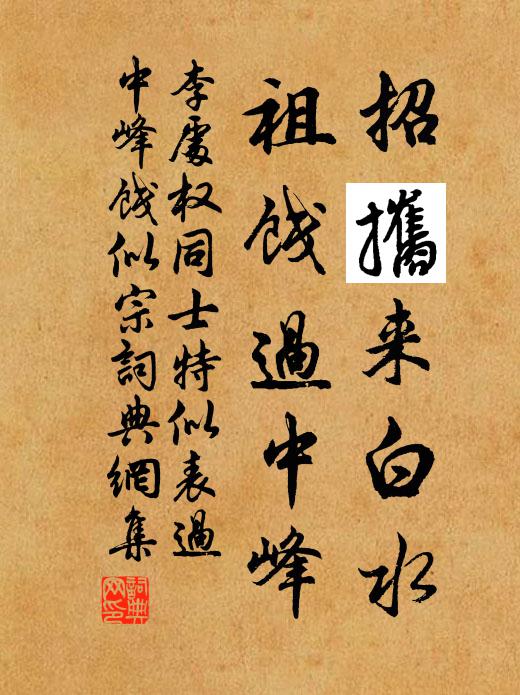 招攜来白水
祖餞過中峰
李處权同士特似表過
中峰餞似宗詞典網集
詞典网印